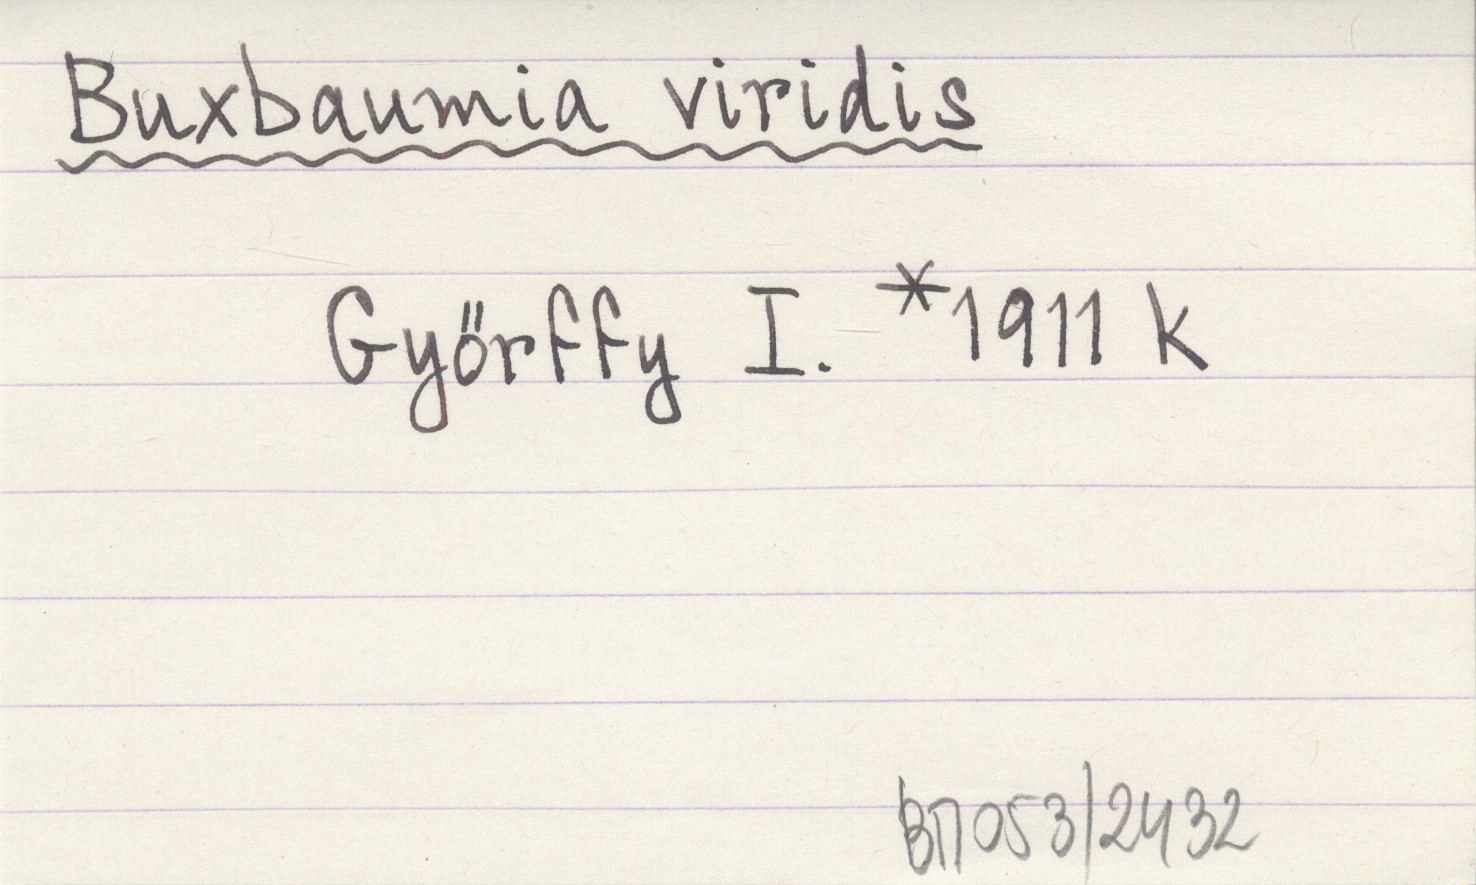 Buxbaumia viridis
Györffy I. *1911 k
BП053/2432